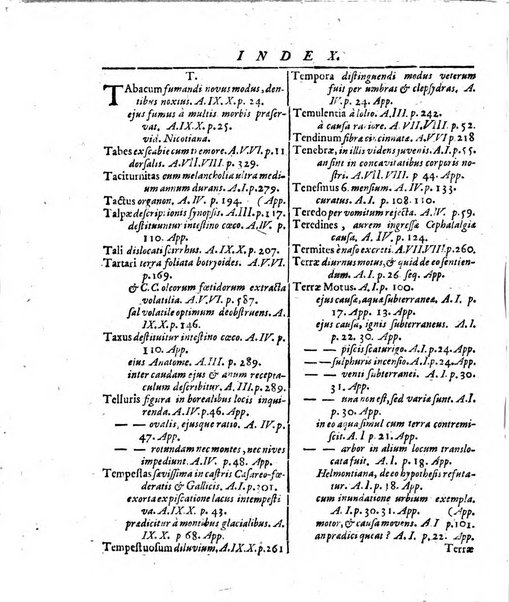 INDEX.
T.
TAbacum fumandi novus modus, den-
tibus noxius. A. IX. X. p. 24.
ejus fumus à multis morbis præser-
vat. A. IX. X. p. 25.
vid. Nicotiana.
Tabes ex scabie cum emore. A. V. VI. p. 11
dorsalis. A. VII. VIII. p. 329.
Taciturnitas cum melancholia ultra medi-
um annum durans. A. I. p. 279.
Tactus organon. A. IV. p. 194. (App.
Talpæ descriptionis synopsis. A. III. p. 117.
destituuntur intestino cœco. A. IV. p.
110. App.
Tali dislocati scirrhus. A. IX. X. p. 207.
Tartari terra foliata botryoides. A. V. VI.
p. 169.
& C. C. oleorum fœtidorum extracti
volatilia. A. V. VI. p. 587.
sal volatile optimum deobstruens. A.
IX. X. p. 146.
Taxus destituitur intestino cœco. A. IV. p.
110. App.
ejus Anatome. A. III. p. 289.
inter caudam ejus & anum recepta-
culum describitur. A. III. p. 289.
Telluris figura in borealibus locis inqui-
renda. A. IV. p. 46. App.
— — ovalis, ejusque ratio. A. IV. p.
47. App.
— — rotundam nec montes, nec nives
impediunt. A. IV. p. 48. App.
Tempestas sævissima in castris Cæsareo-fœ-
deratis & Gallicis. A. I. p. 301.
exorta ex piscatione lacus intempesti
va. A. IX. X. p. 3.
prædicitur à montibus glacialibus. A.
IX. X p 68. App.
Tempestuosum diluvium, A. IX. X. p. 261
Tempora distinguendi modus veterum
fuit per umbras & clepsydras. A.
IV. p. 24. App.
Temulentia à lolio. A. III. p. 242.
à causa rariore. A. VII. VIII. p. 52.
Tendinum fibræ circinnatæ. A. V VI. p 218
Tenebræ, in illis videns juvenis. A. I. p. 63.
an sint in concavitatibus corporis no-
stri. A. VII. VIII. p 44. App.
Tenesmus 6. mensium. A. IV. p. 133.
curatus. A. I. p. 108. 110.
Teredo per vomitum rejecta. A. IV. p. 59.
Teredines, aurem ingressæ Cephalalgia
causa, A. IV. p. 124.
Termites ex osse exempti. A. VII. VIII. p. 260.
Terræ diurnus motus, & quid de eo sentien-
dum. A. I. p. 26 seq. App.
Terræ Motus. A. I. p. 100.
ejus causa, aqua subterranea, A. I. p.
17. App. 13. App.
ejus causa, ignis subterraneus. A. I.
p. 22. 30. App.
— — piscis scaturigo. A. I. p. 24. App.
— — sulphuris incendium. A. I. p. 24. App.
— — venti subterranei. A. I. p. 30.
31. App.
— — una non est, sed varia sunt. A. I.
p. 30. App.
in eo aquæ simul cum terra contremi-
scit. A. I. p. 21. App.
— — arbor in alium locum translo-
cata fuit. A. I. p. 13. App.
Helmontiana, de eo hypothesis refuta-
tur. A. I. p. 18. App.
cum inundatione urbium exempla.
A. I. p. 30. 31. App. (App.
motor, & causa movens. A. I p. 101.
an prædici queat? A. I. p. 22. App.
Terræ